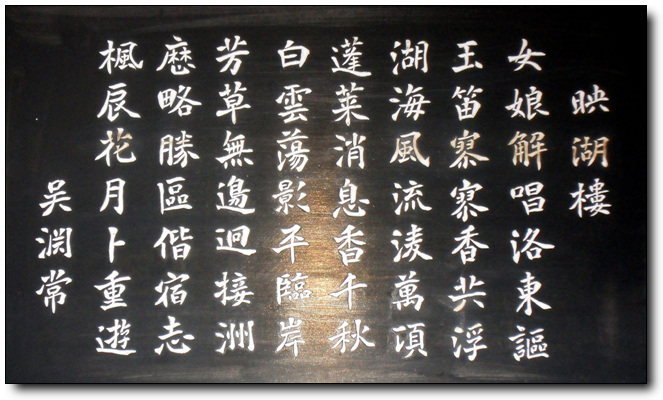 映湖樓
女娘解唱洛東謳
玉笛寥寥香共浮
湖海風流淩萬頃
蓬萊消息香千秋
白雲蕩影平臨岸
芳草無邊逈接洲
歷略勝區偕宿志
楓辰花月卜重遊
吳淵常